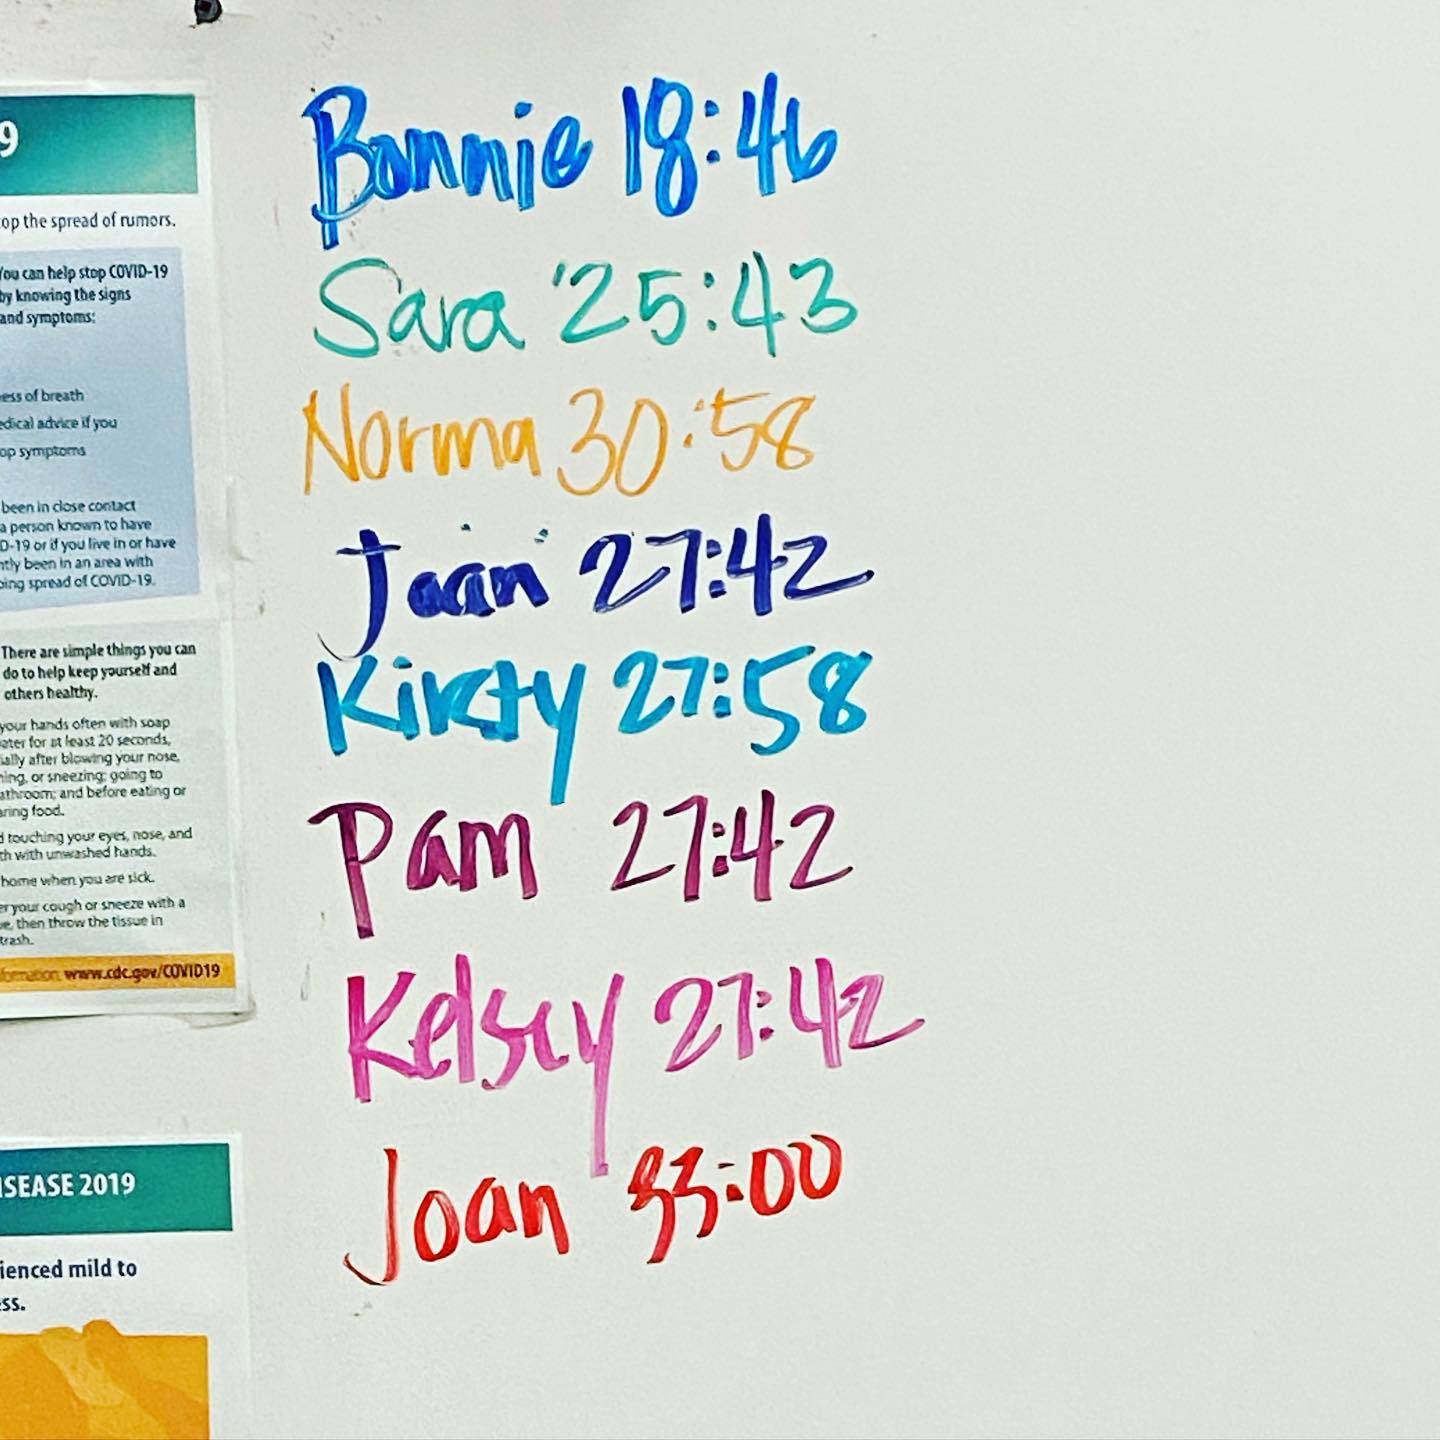 9
op the spread of rumors.
You can help stop COVID-19
by knowing the signs
and symptoms:
ess of breath
edical advice if you
op symptoms
been in close contact
a person known to have
D-19 or if you live in or have
ntly been in an area with
oing spread of COVID-19.
There are simple things you can
do to help keep yourself and
others healthy.
your hands often with soap
ater for at least 20 seconds,
ially after blowing your nose,
hing, or sneezing; going to
athroom; and before eating or
aring food.
d touching your eyes, nose, and
th with unwashed hands.
home when you are sick.
er your cough or sneeze with a
ue, then throw the tissue in
trash.
formation: www.cdc.gov/COVID19
ISEASE 2019
ienced mild to
ess.
Bonnie 18:46
Sara 25:43
Norma 30:58
27:42
Kirsty 27:58
Pam 27:42
Kelsey 27:42
Joan 33:00